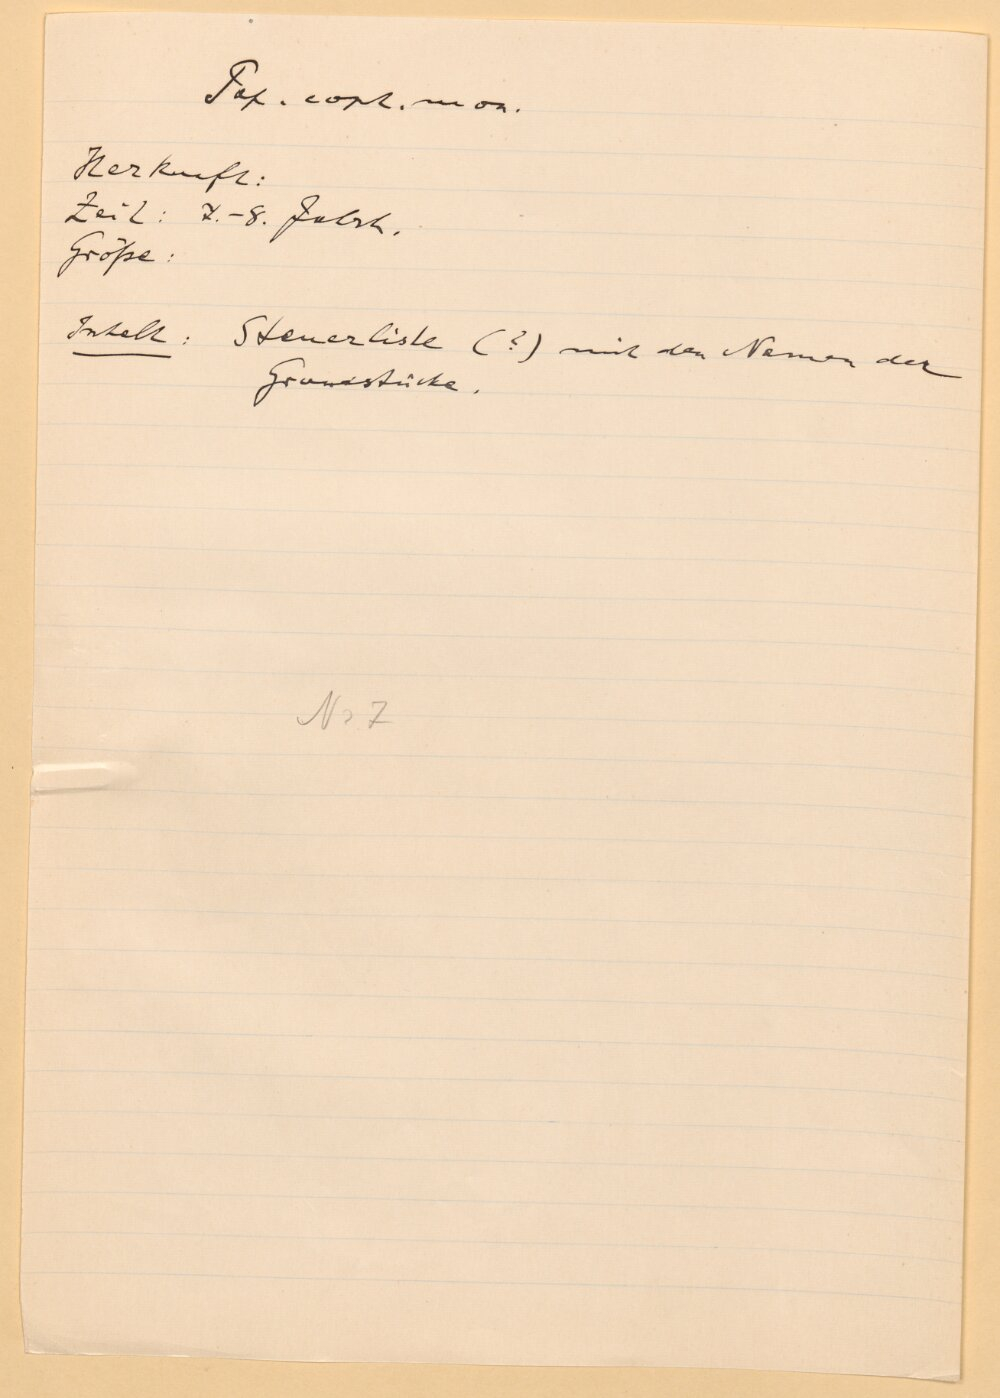 Pap. copt. mon.
Herkunft:
Zeit: 7.-8. Jahrh.
Größe:
Inhalt: Steuerliste (?) mit den Namen der
Grundstücke.
No 7